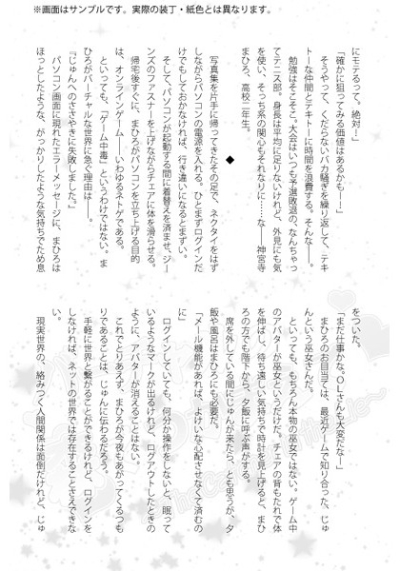 ※画面はサンプルです。実際の装丁・紙色とは異なります。
にモテるって。絶対！」
「確かに狙ってみる価値はあるかも――」
　そうやって、くだらないバカ騒ぎを繰り返して、テキ
トーな仲間とテキトーに時間を浪費する。そんな――。
　勉強はそこそこ。大会はいつも予選敗退のなんちゃっ
てテニス部。身長は平均に足りないけれど、外見にも気
を使い、そっち系の関心もそれなりに……な――神宮寺
まひろ、高校二年生。
◆
　写真集を片手に帰ってきたその足で、ネクタイをはず
しながらパソコンの電源を入れる。ひとまずログインだ
けでもしておかなければ、行き違いになるとまずい。
　そして、パソコンが起動する間に着替えを済ませ、ジー
ンズのファスナーを上げながらチェアに体を滑らせる。
　帰宅後すぐに、まひろがパソコンを立ち上げる目的
は、オンラインゲーム――いわゆるネトゲである。
　といっても、「ゲーム中毒」というわけではない。ま
ひろがバーチャルな世界に急ぐ理由は――。
『じゅんへのささやきに失敗しました』
　パソコン画面に現れたエラーメッセージに、まひろは
ほっとしたような、がっかりしたような気持ちでため息
をついた。
「まだ仕事かな。ＯＬさんも大変だな」
　まひろのお目当ては、最近ゲームで知り合った、じゅ
んという巫女さんだ。
　といっても、もちろん本物の巫女ではない。ゲーム中
のアバターが巫女というだけだ。チェアの背もたれで体
を伸ばし、待ち遠しい気持ちで時計を見上げると、まひ
ろの方でも階下から、夕飯に呼ぶ声がする。
　席を外している間にじゅんが来たら、とも思うが、夕
飯や風呂はまひろにも必要だ。
「メール機能があれば、よけいな心配させなくて済むの
に」
　ログインしていても、何分か操作をしないと、眠って
いるようなマークが出るけれど、ログアウトしたときの
ように、アバターが消えることはない。
　これでとりあえず、まひろが今夜もあがってくるつも
りであることは、じゅんに伝わるだろう。
　手軽に世界と繋がることができるけれど、ログインを
しなければ、ネットの世界では存在することさえできな
い。
　現実世界の、絡みつく人間関係は面倒だけれど、じゅ